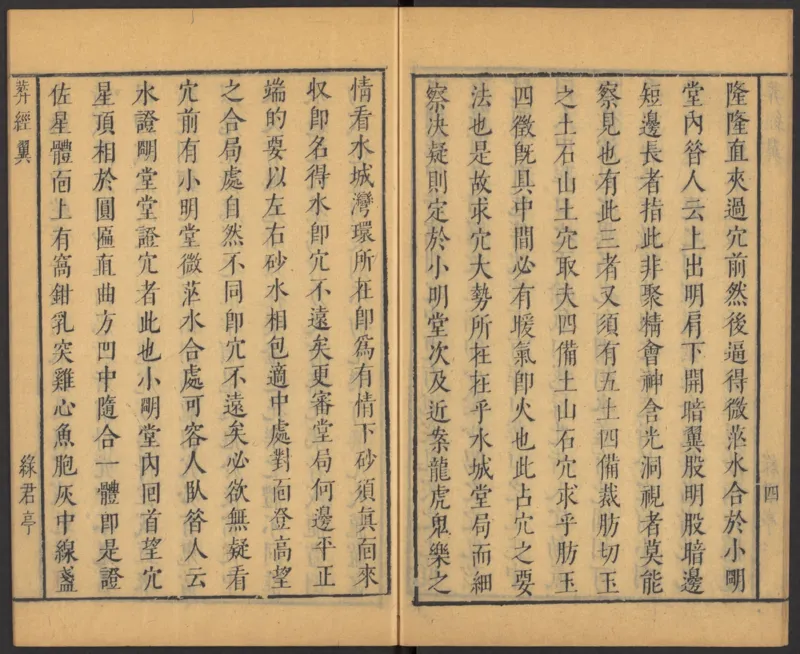 四
隆隆直夾過穴前然後逼得微茫水合於小明
堂內昝人云上出明肩下開暗翼股明股暗邊
短邊長者指此非聚精會神含光洞視者莫能
察見也有此三者又須有五土四備裁肪切玉
之土石山土穴取夫四備土山石穴求乎肪玉
四徵旣具中間必有暖氣卽火也此占穴之要
法也是故求穴大勢所在在乎水城堂局而細
察决疑則定於小明堂次及近案龍虎鬼樂之
情看水城灣環所在卽爲有情下砂須眞面來
収卽名得水卽穴不遠矣更審堂局何邊平正
端的要以左右砂水相包適中處對面登高望
之合局處自然不同卽穴不遠矣必欲無疑看
穴前有小明堂微茫水合處可容人臥昝人云
水證明堂堂證穴者此也小明堂內回首望穴
星頂相於圓匾直曲方凹中隨合一體卽是證
佐星體面上有窩鉗乳突雞心魚胞灰中線盞
葬經翼
綠君亭